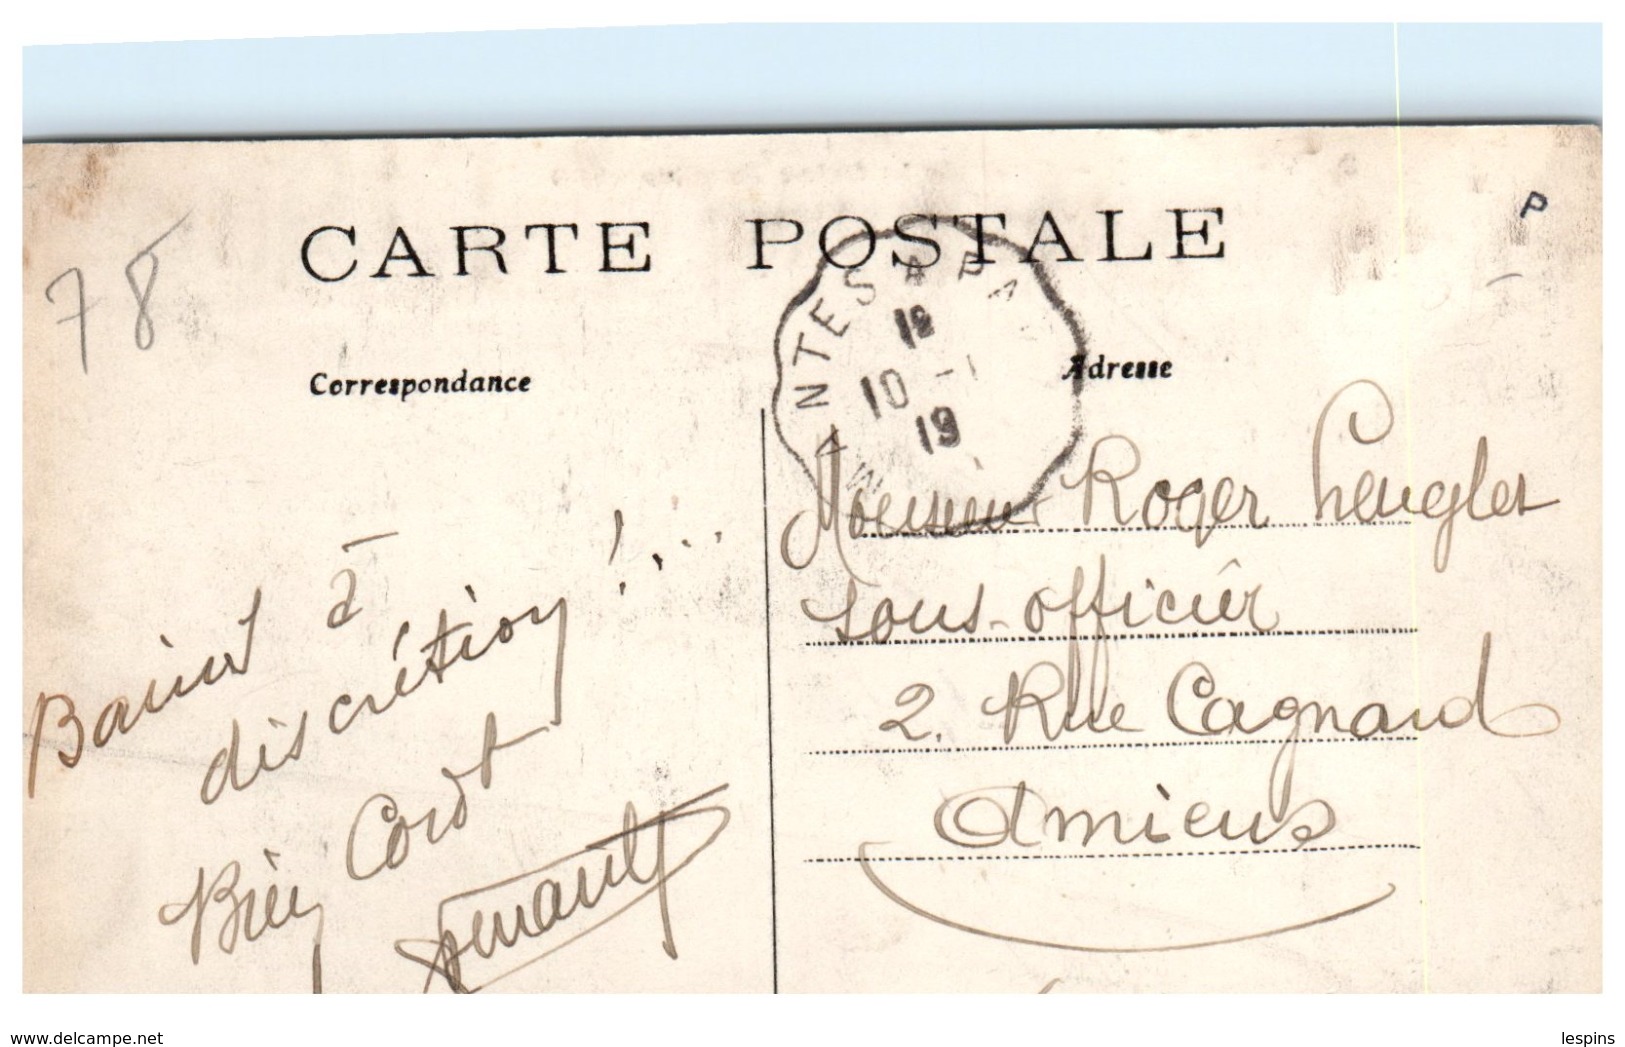 CARTE POSTALE
78
P
MANTES A PA
12
10 - 1
19
Correspondance
Adresse
à
discrétion !...
Bien Cordt
Monsieur Roger
sous-officier
2. Rue Cagnard
Amiens
www.delcampe.net
lespins